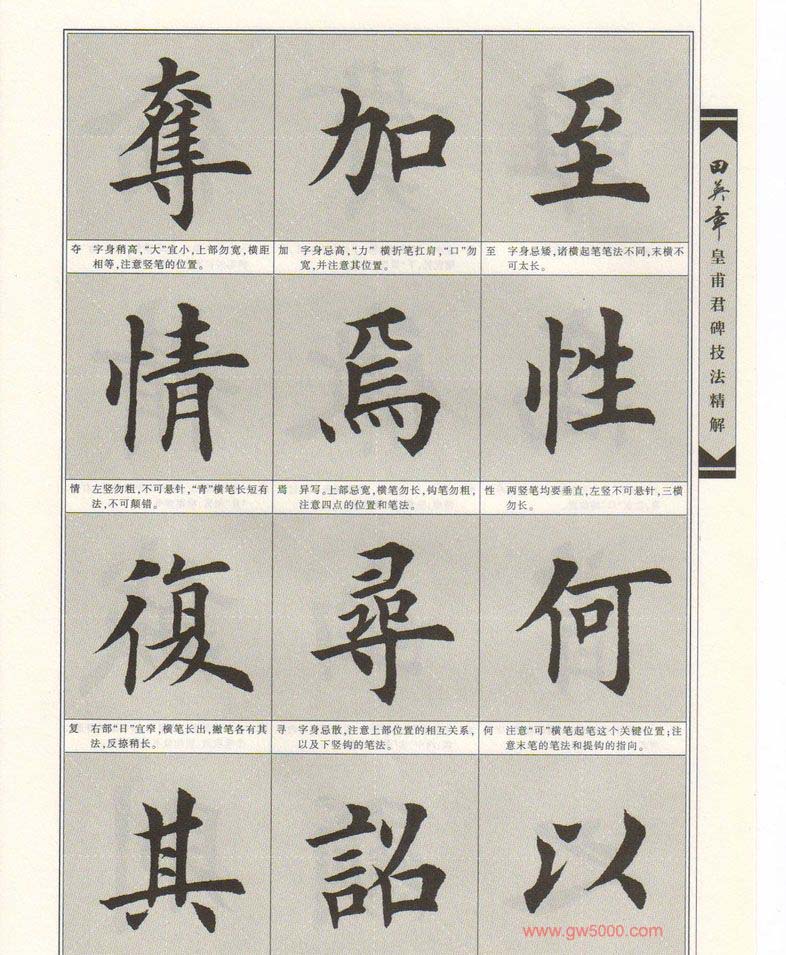 奪 加 至
夺 字身稍高,“大”宜小,上部勿宽,横距
相等,注意竖笔的位置。
加 字身忌高,“力” 横折笔扛肩,“口”勿
宽,并注意其位置。
至 字身忌矮,诸横起笔笔法不同,末横不
可太长。
情 焉 性
情 左竖勿粗,不可悬针,“青”横笔长短有
法,不可颠错。
焉 异写。上部忌宽,横笔勿长,钩笔勿粗,
注意四点的位置和笔法。
性 两竖笔均要垂直,左竖不可悬针,三横
勿长。
復 尋 何
复 右部“日”宜窄,横笔长出,撇笔各有其
法,反捺稍长。
寻 字身忌散,注意上部位置的相互关系,
以及下竖钩的笔法。
何 注意“可”横笔起笔这个关键位置;注
意末笔的笔法和提钩的指向。
其 詔 以
田英章
皇甫君碑技法精解
www.gw5000.com